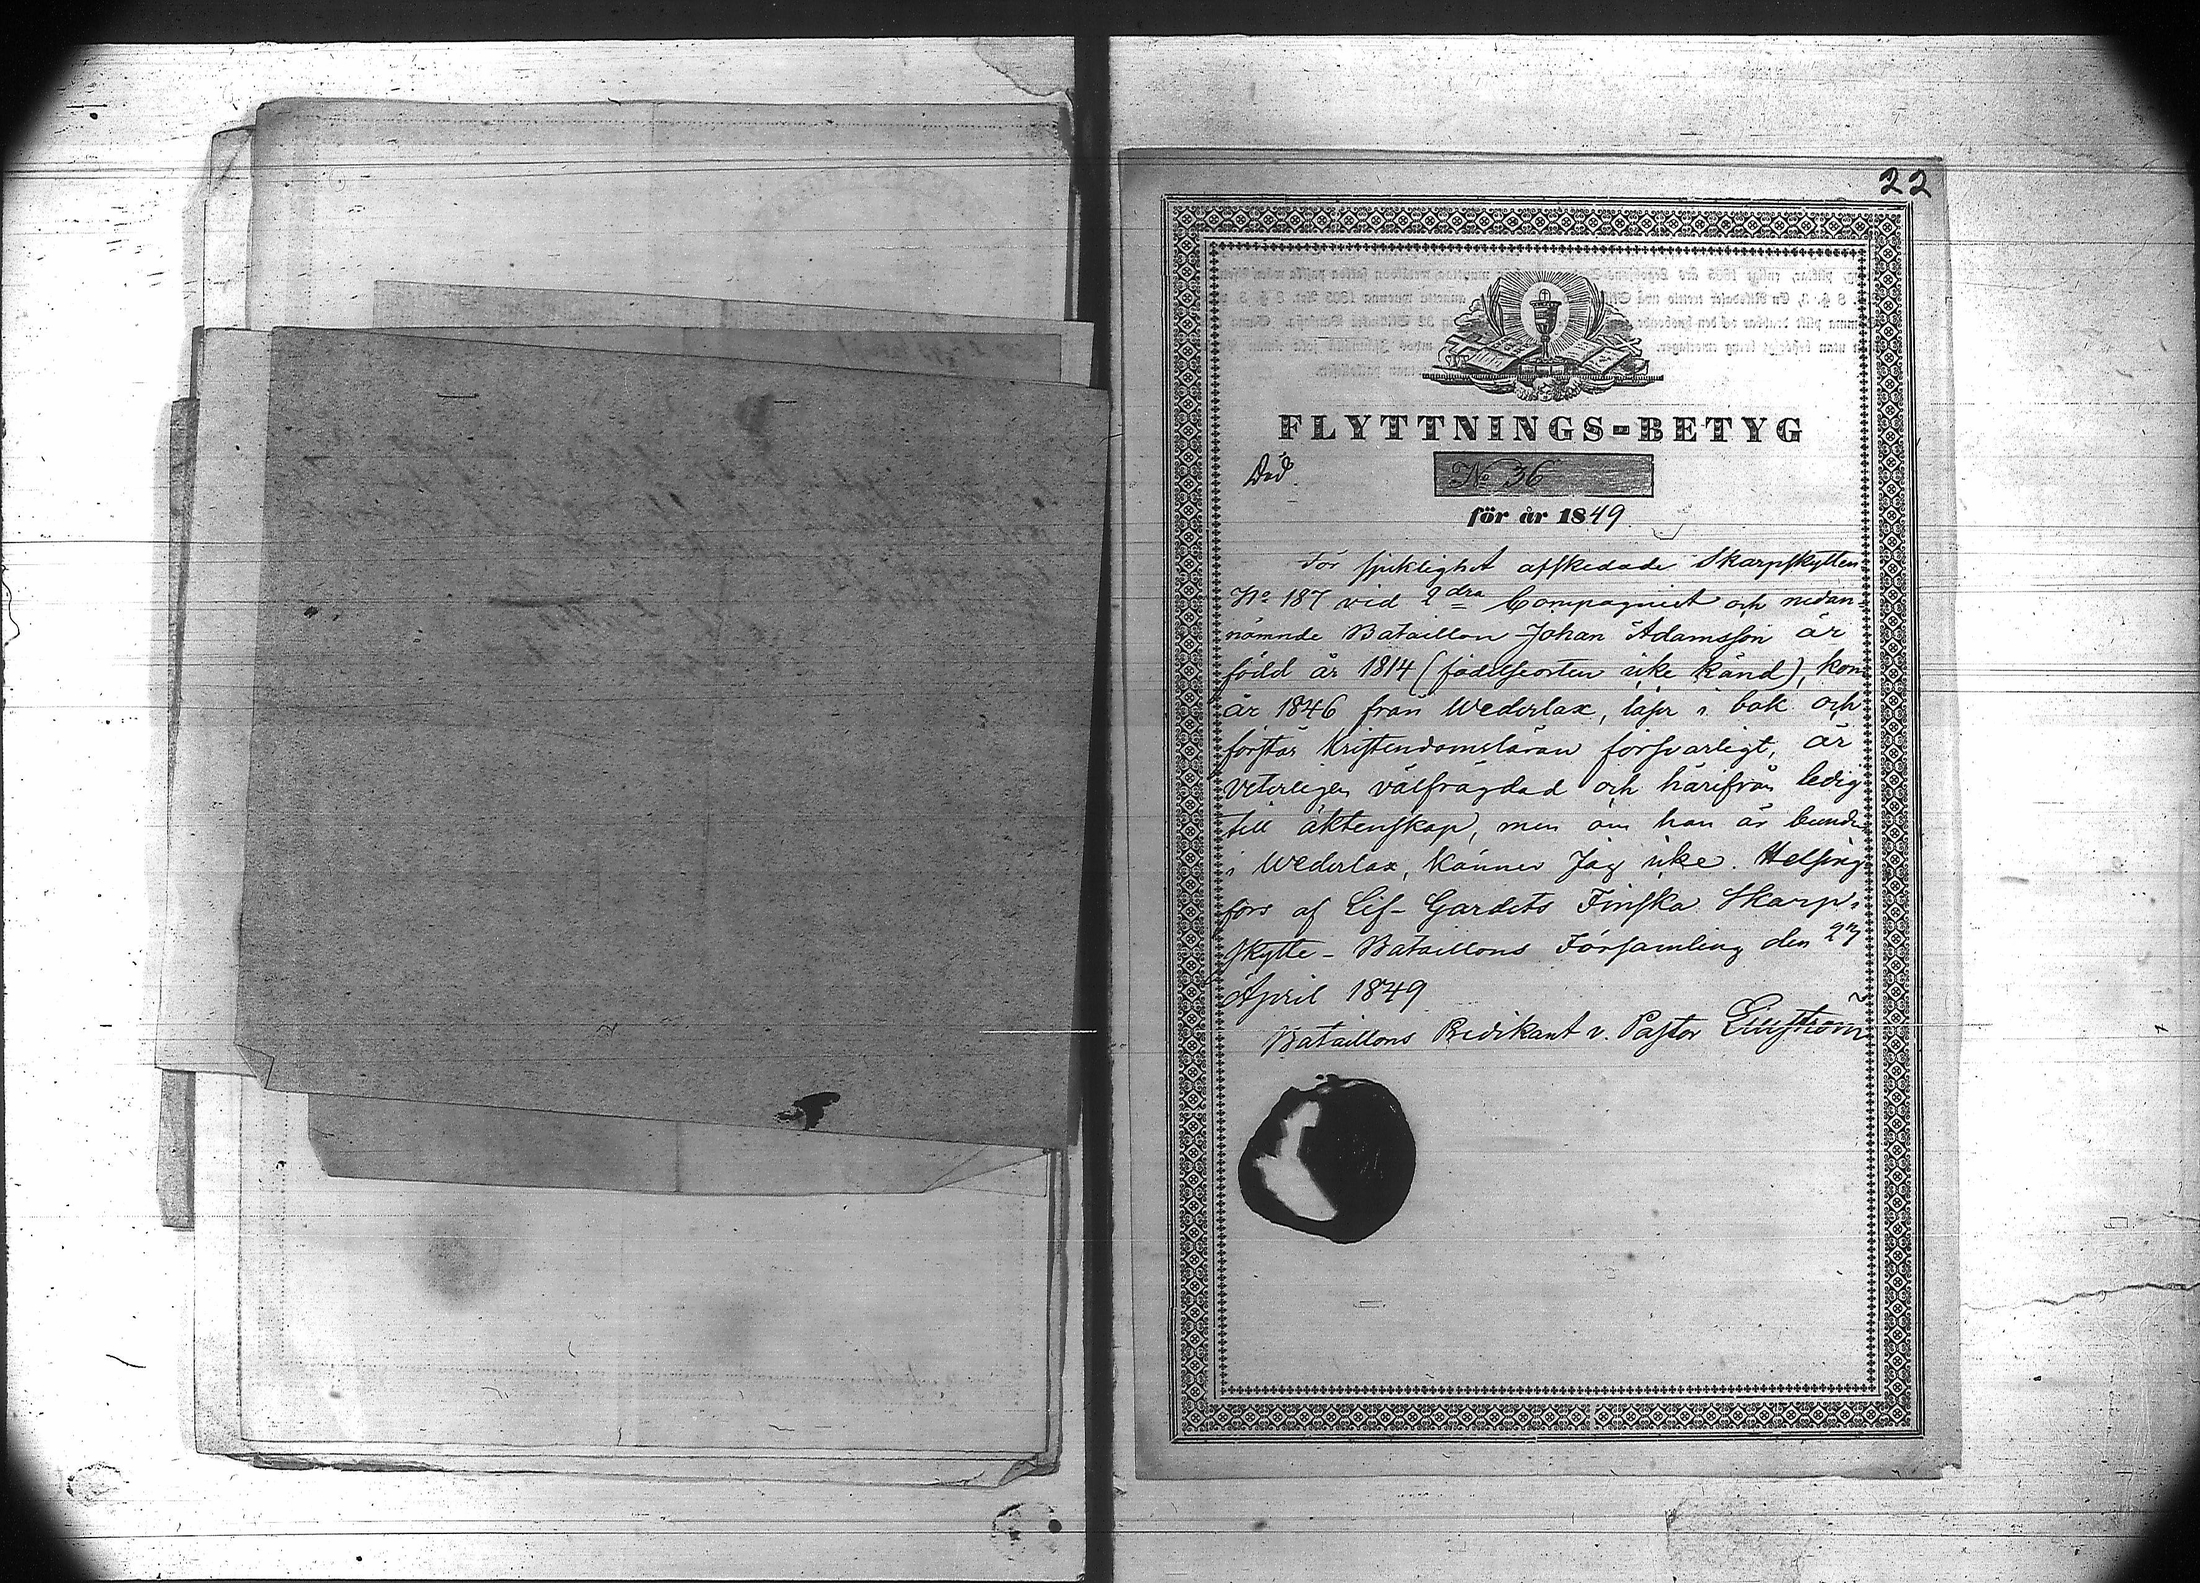 22
FLYTTNINGS-BETYG
Död.
No 36
för år 1849.
För sjuklighet afskedade Skarpskytten
No 187 vid 2dra Compagniet och nedan-
nämnde Bataillon Johan Adamsson är
född år 1814 (födelseorten icke känd), kom
år 1846 från Wederlax, läser i bok och
förstår Kristendomsläran försvarligt, är
veterligen välfrägdad och härifrån ledig
till äktenskap, men om han är bunden
i Wederlax, känner Jag icke. Helsing
fors af Lif-Gardets Finska Skarp-
skytte-Bataillons Församling den 27
April 1849
Bataillons Predikant v. Pastor